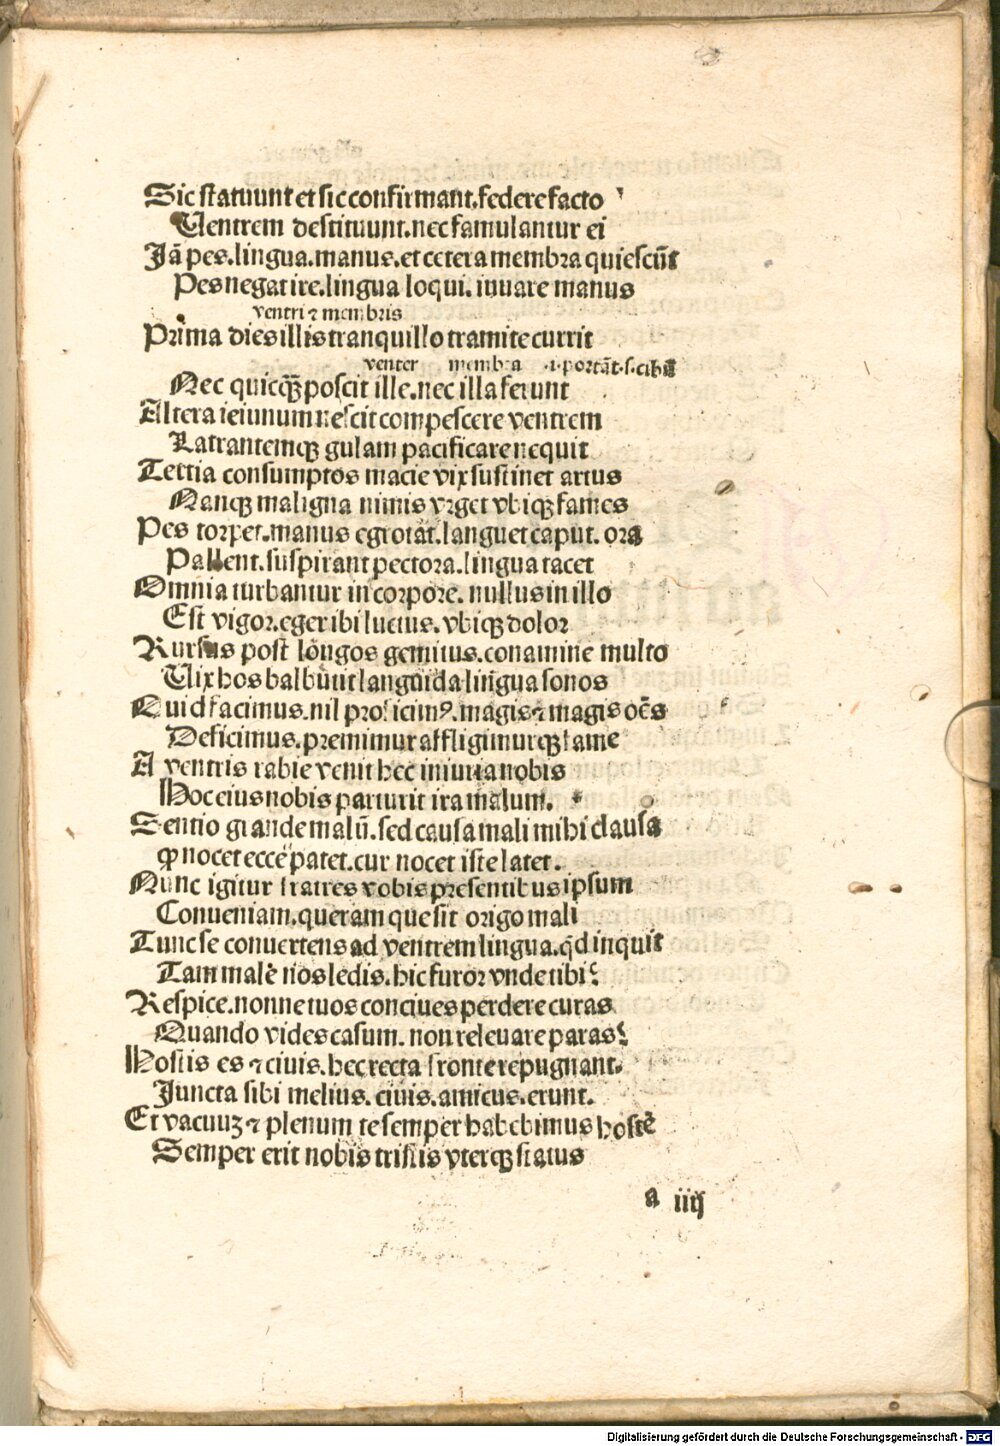 Sic statuunt et sic confirmant. federe facto
Uentrem destituunt. nec famulantur ei
Jā pes. lingua. manus. et cetera membra quiescūt
Pes negat ire. lingua loqui. iuuare manus
ventri ⁊ membris
Prima dies illis tranquillo tramite currit
venter membra .i. portāt. s. cibū
Nec quicqꝫ poscit ille. nec illa ferunt
Altera ieiunum nescit compescere ventrem
Latrantemqꝫ gulam pacificare nequit
Tertia consumptos macie vix sustinet artus
Nanqꝫ maligna nimis vrget vbiqꝫ fames
Pes torpet. manus egrotāt. languet caput. ora
Pallent. suspirant pectora. lingua tacet
Omnia turbantur in corpore. nullus in illo
Est vigor. eger ibi luctus. vbiqꝫ dolor
Rursus post longos gemitus. conamine multo
Uix hos balbutit languida lingua sonos
Quid facimus. nil proficimꝰ. magis ⁊ magis oēs
Deficimus. premimur affligimurqꝫ fame
A ventris rabie venit hec iniuria nobis
Hoc eius nobis parturit ira malum.
Sentio grande malū. sed causa mali mihi clausa
ꝙ nocet ecce patet. cur nocet iste latet.
Nunc igitur fratres vobis presentibus ipsum
Conueniam. queram que sit origo mali
Tunc se conuertens ad ventrem lingua. qd inquit
Tam male nos ledis. hic furor vnde tibi?
Respice. nonne tuos conciues perdere curas
Quando vides casum. non releuare paras?
Hostis es ⁊ ciuis. hec recta fronte repugnant.
Juncta sibi melius. ciuis. amicus. erunt.
Et vacuuꝫ ⁊ plenum te semper habebimus hostē
Semper erit nobis tristis vterqꝫ status
a iiij
Digitalisierung gefördert durch die Deutsche Forschungsgemeinschaft - DFG